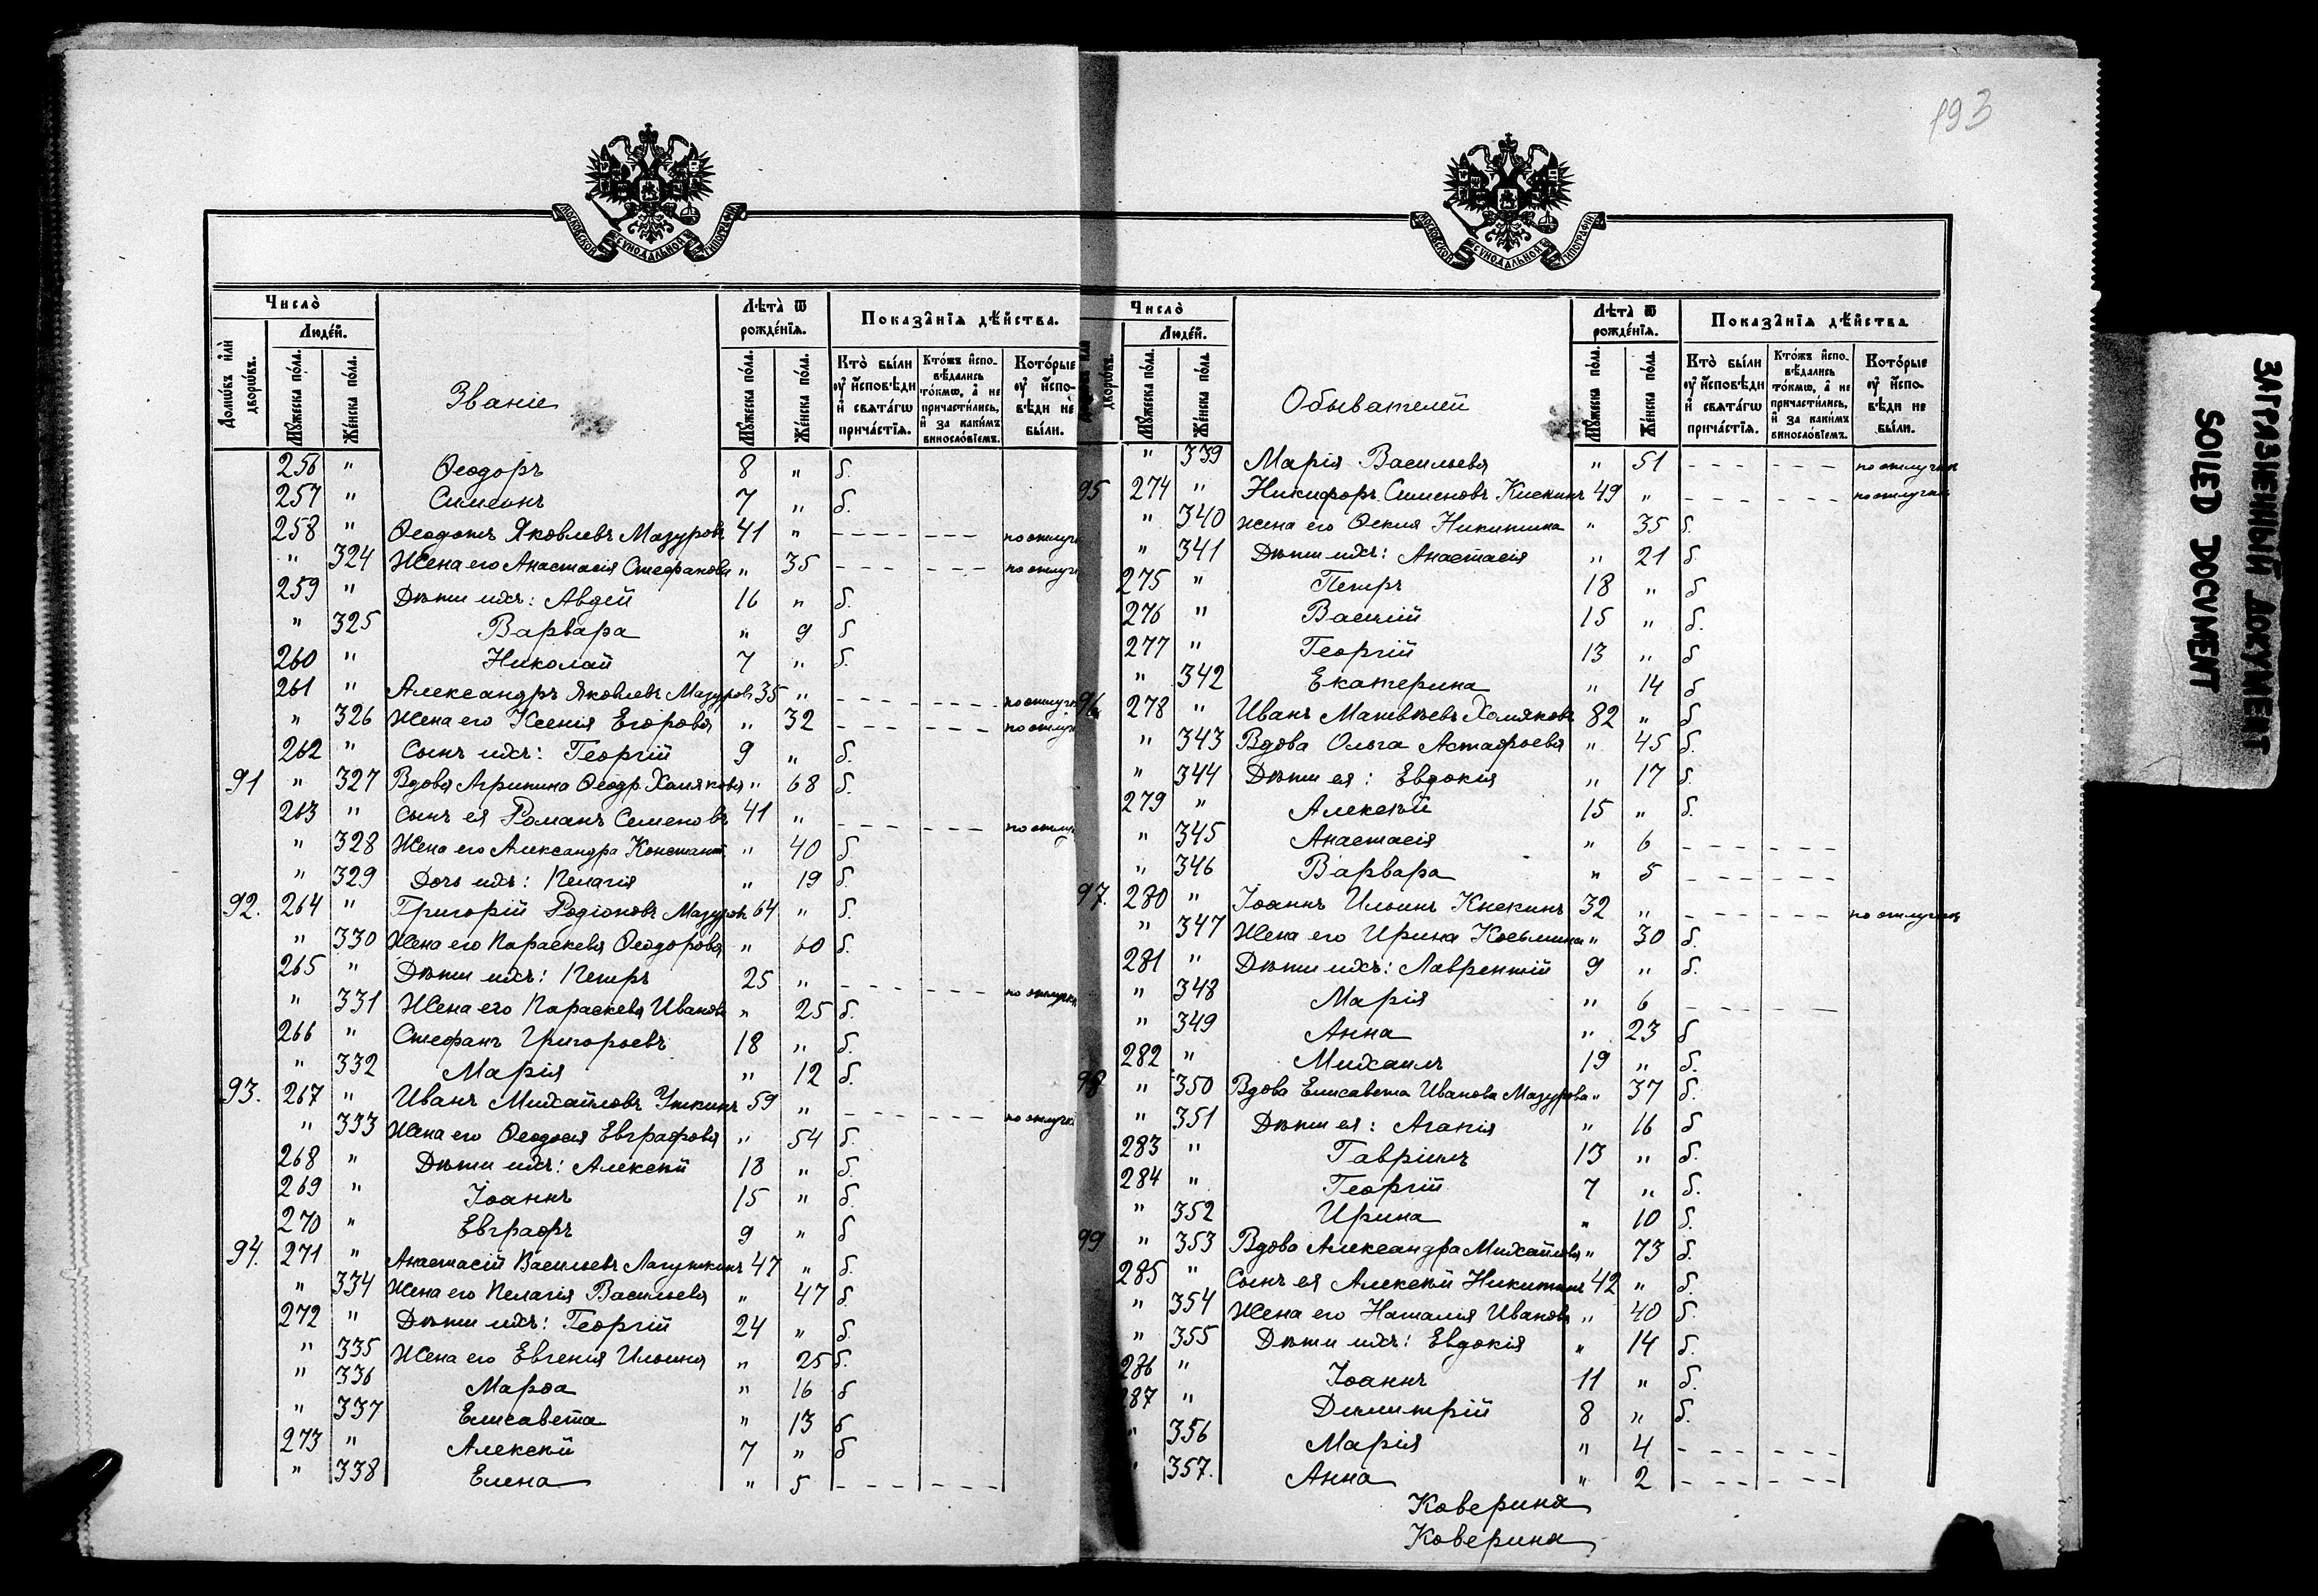 193
МОСКОВСКОЙ СУНОДАЛЬНОЙ ТИПОГРАФІИ
Число̀
Людéй.
Лѣта̀ ѿ рождéнїѧ.
Показа̑нїѧ дѣ́йства.
Домѡ́въ и҆лѝ дворѡ́въ.
Мꙋ́жеска по́ла.
Же́нска по́ла.
Званіе
Мꙋ́жеска по́ла.
Же́нска по́ла.
Кто̀ бы́ли оу҆ и҆́сповѣди и҆ свѧта́гѡ прича́стїѧ.
Кто́жъ и҆спо-вѣ́дались то́кмѡ, а҆ не причасти́лись, и҆ за каки́мъ винословїемъ.
Кото́рые оу҆ и҆́спо-вѣди нѐ бы́ли.
256 " Ѳеодоръ 8 " б.
257 " Симеонъ 7 " б.
258 " Ѳеодотъ Яковлевъ Мазуровъ 41 " - - - - - - - по отлуч
" 324 Жена его Анастасія Стефанова " 35 - - - - - - по отлуч
259 " Дѣти ихъ: Авдей 16 " б.
" 325 Варвара " 9 б
260 " Николай 7 " б.
261 " Александръ Яковлевъ Мазуровъ 35 " - - - - - - - по отлучк
" 326 Жена его Ксенія Егорова " 32 - - - - - - по отлуч
262 " Сынъ ихъ: Георгій 9 " б.
91 " 327 Вдова Агрипина Ѳеодр. Хамякова " 68 б.
263 " Сынъ ея Романъ Семеновъ 41 " - - - - - - по отлуч
" 328 Жена его Александра Констант. " 40 б
" 329 Дочь ихъ: Пелагія " 19 б.
92. 264 " Григорій Родіоновъ Мазуровъ 64 " б.
" 330 Жена его Параскева Ѳеодорова " 60 б.
265 " Дѣти ихъ: Петръ 25 " - - - - - - по отлучк
" 331 Жена его Параскева Иванова " 25 б.
266 " Стефанъ Григорьевъ 18 " б.
" 332 Марія " 12 б.
93. 267 " Иванъ Михайловъ Уткинъ 59 " - - - - - - по отлучк
" 333 Жена его Ѳеодосія Евграфова " 54 б.
268 " Дѣти ихъ: Алексѣй 18 " б.
269 " Іоаннъ 15 " б
270 " Евграфъ 9 " б
94. 271 " Анастасій Васильевъ Лагуткинъ 47 " б.
" 334 Жена его Пелагія Васильева " 47 б.
272 " Дѣти ихъ: Георгій 24 " б.
" 335 Жена его Евгенія Ильина " 25 б.
" 336 Марѳа " 16 б
" 337 Елисавета " 13 б
273 " Алексѣй 7 " б
" 338 Елена " 5 - - - - - -
Число̀
Людéй.
Лѣта̀ ѿ рождéнїѧ.
Показа̑нїѧ дѣ́йства
дворѡ́въ.
Мꙋ́жеска по́ла.
Же́нска по́ла
Обывателей
Мꙋ́жеска по́ла.
Же́нска по́ла.
Кто̀ бы́ли оу҆ и҆́сповѣди и҆ свѧта́гѡ прича́стїѧ.
Кто́жъ и҆спо-вѣ́дались то́кмѡ, а҆ не причасти́лись, и҆ за каки́мъ винословїемъ.
Кото́рые оу҆ и҆́спо-вѣди не бы́ли.
" 339 Марія Васильева " 51 - - - - - - по отлучкѣ
95 274 " Никифоръ Сименовъ Кнекинъ 49 " - - - - - - по отлучкѣ
" 340 Жена его Ѳекла Никитина " 35 б.
" 341 Дѣти ихъ: Анастасія " 21 б.
275 " Петръ 18 " б
276 " Василій 15 " б.
277 " Георгій 13 " б
" 342 Екатерина " 14 б
96 278 " Иванъ Матвѣевъ Хамяковъ 82 " б
" 343 Вдова Ольга Астафьева " 45 б.
" 344 Дѣти ея: Евдокія " 17 б.
279 " Алексѣй 15 " б.
" 345 Анастасія " 6 - - - - - -
" 346 Варвара " 5 - - - - - -
97. 280 " Іоаннъ Ильинъ Кнекинъ 32 " - - - - - - по отлучкѣ
" 347 Жена его Ирина Косьмина " 30 б.
281 " Дѣти ихъ: Лаврентій 9 " б.
" 348 Марія " 6 - - - - - -
" 349 Анна " 23 б
282 " Михаилъ 19 " б.
98 " 350 Вдова Елисавета Иванова Мазурова " 37 б.
" 351 Дѣти ея: Агапія " 16 б
283 " Гавріилъ 13 " б.
284 " Георгій 7 " б.
" 352 Ирина " 10 б.
99 " 353 Вдова Александра Михайлова " 73 б.
285 " Сынъ ея Алексѣй Никитинъ 42 " б.
" 354 Жена его Наталія Иванова " 40 б.
" 355 Дѣти ихъ: Евдокія " 14 б.
286 " Іоаннъ 11 " б.
287 " Димитрій 8 " б.
" 356 Марія " 4 - - - - - -
" 357. Анна " 2 - - - - - -
Коверина
Коверина
ЗАГРЯЗНЕННЫЙ ДОКУМЕНТ
SOILED DOCUMENT